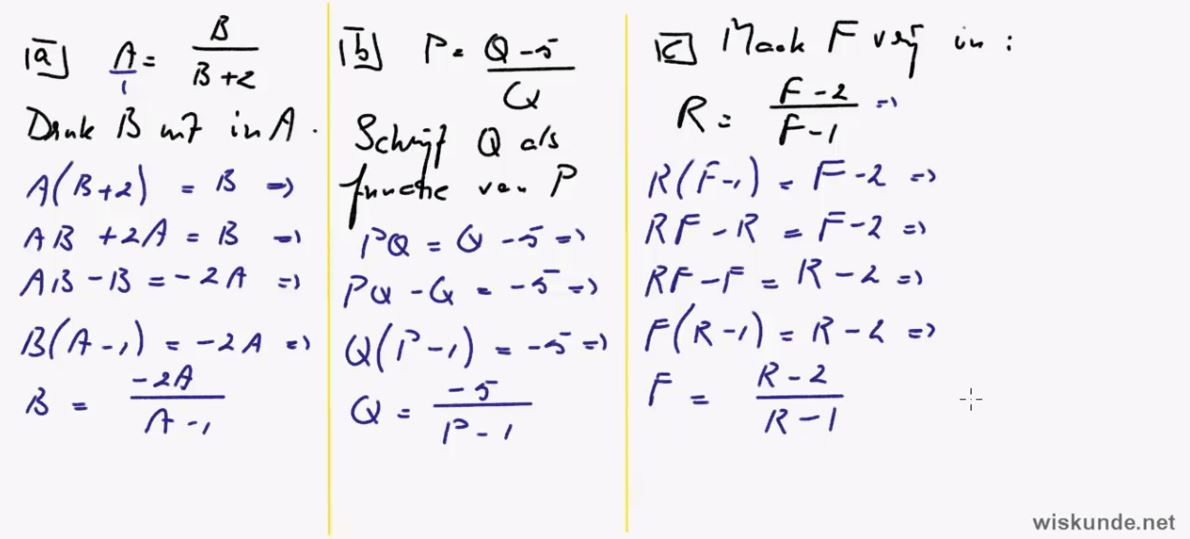 [a] A/1 = B/(B+2)
Druk B uit in A.
A(B+2) = B =>
AB + 2A = B =>
AB - B = -2A =>
B(A-1) = -2A =>
B = -2A/(A-1)
[b] P = (Q-5)/Q
Schrijf Q als
functie van P
PQ = Q - 5 =>
PQ - Q = -5 =>
Q(P-1) = -5 =>
Q = -5/(P-1)
[c] Maak F vrij in :
R = (F-2)/(F-1) =>
R(F-1) = F-2 =>
RF - R = F-2 =>
RF - F = R-2 =>
F(R-1) = R-2 =>
F = (R-2)/(R-1)
wiskunde.net